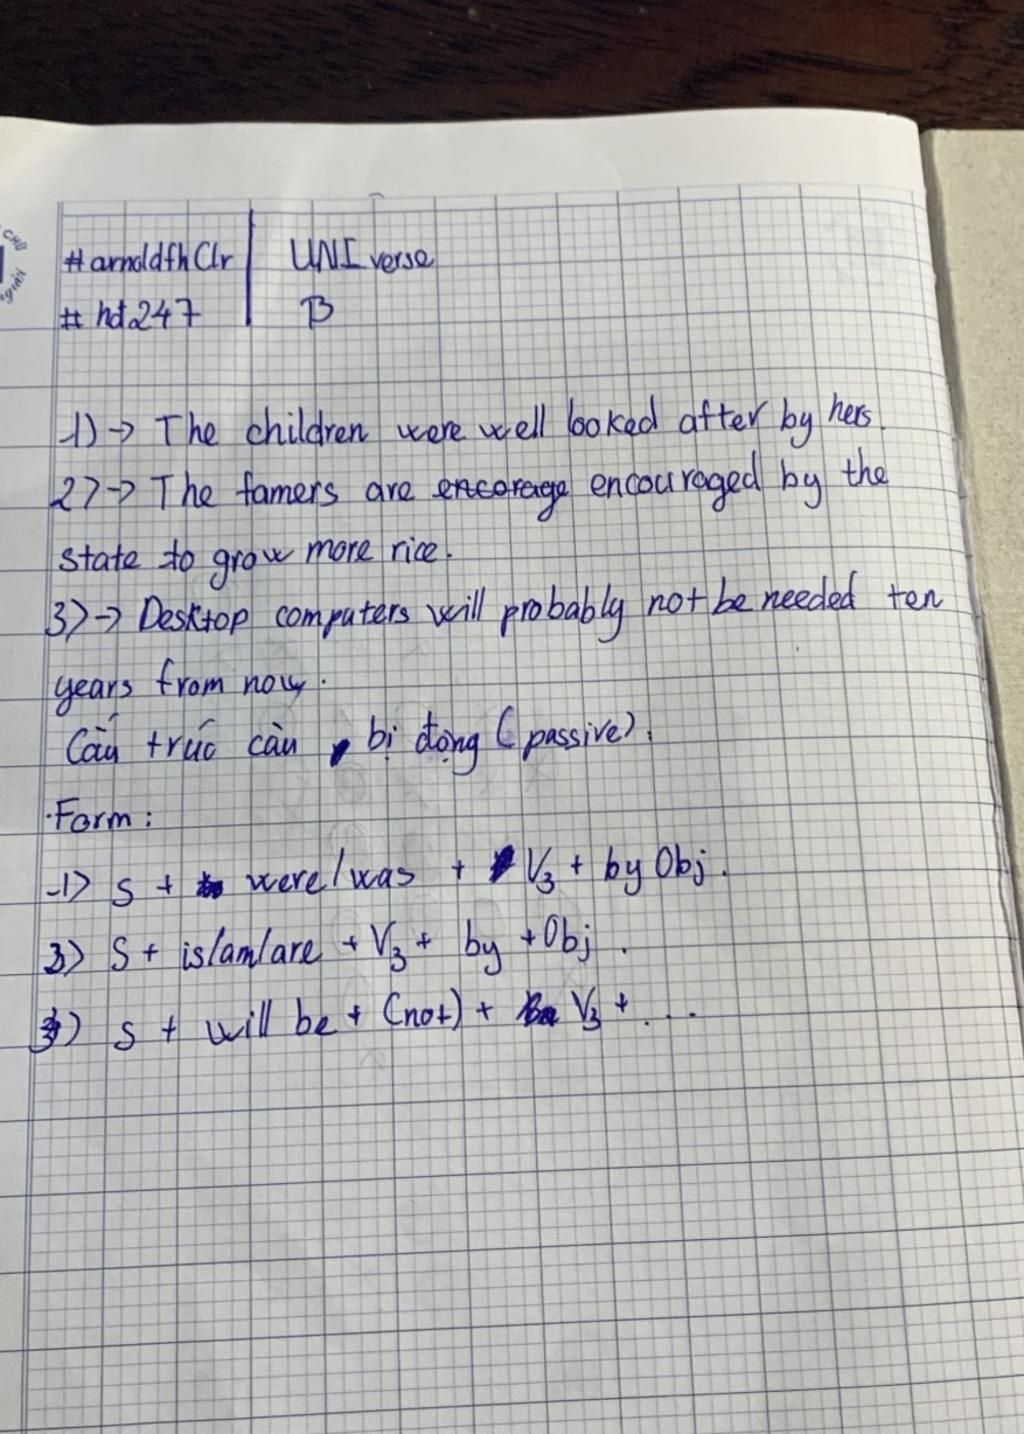 CHỮ
#arnoldfhClr | UNIverse
# hd247 | B
1) → The children were well looked after by hers.
2) → The famers are encorage encouraged by the
state to grow more rice.
3) → Desktop computers will probably not be needed ten
years from now.
Cấu trúc câu bị động (passive).
Form:
1) S + were/was + V3 + by Obj.
3) S + is/am/are + V3 + by + Obj.
3) S + will be + (not) + V3 + ....